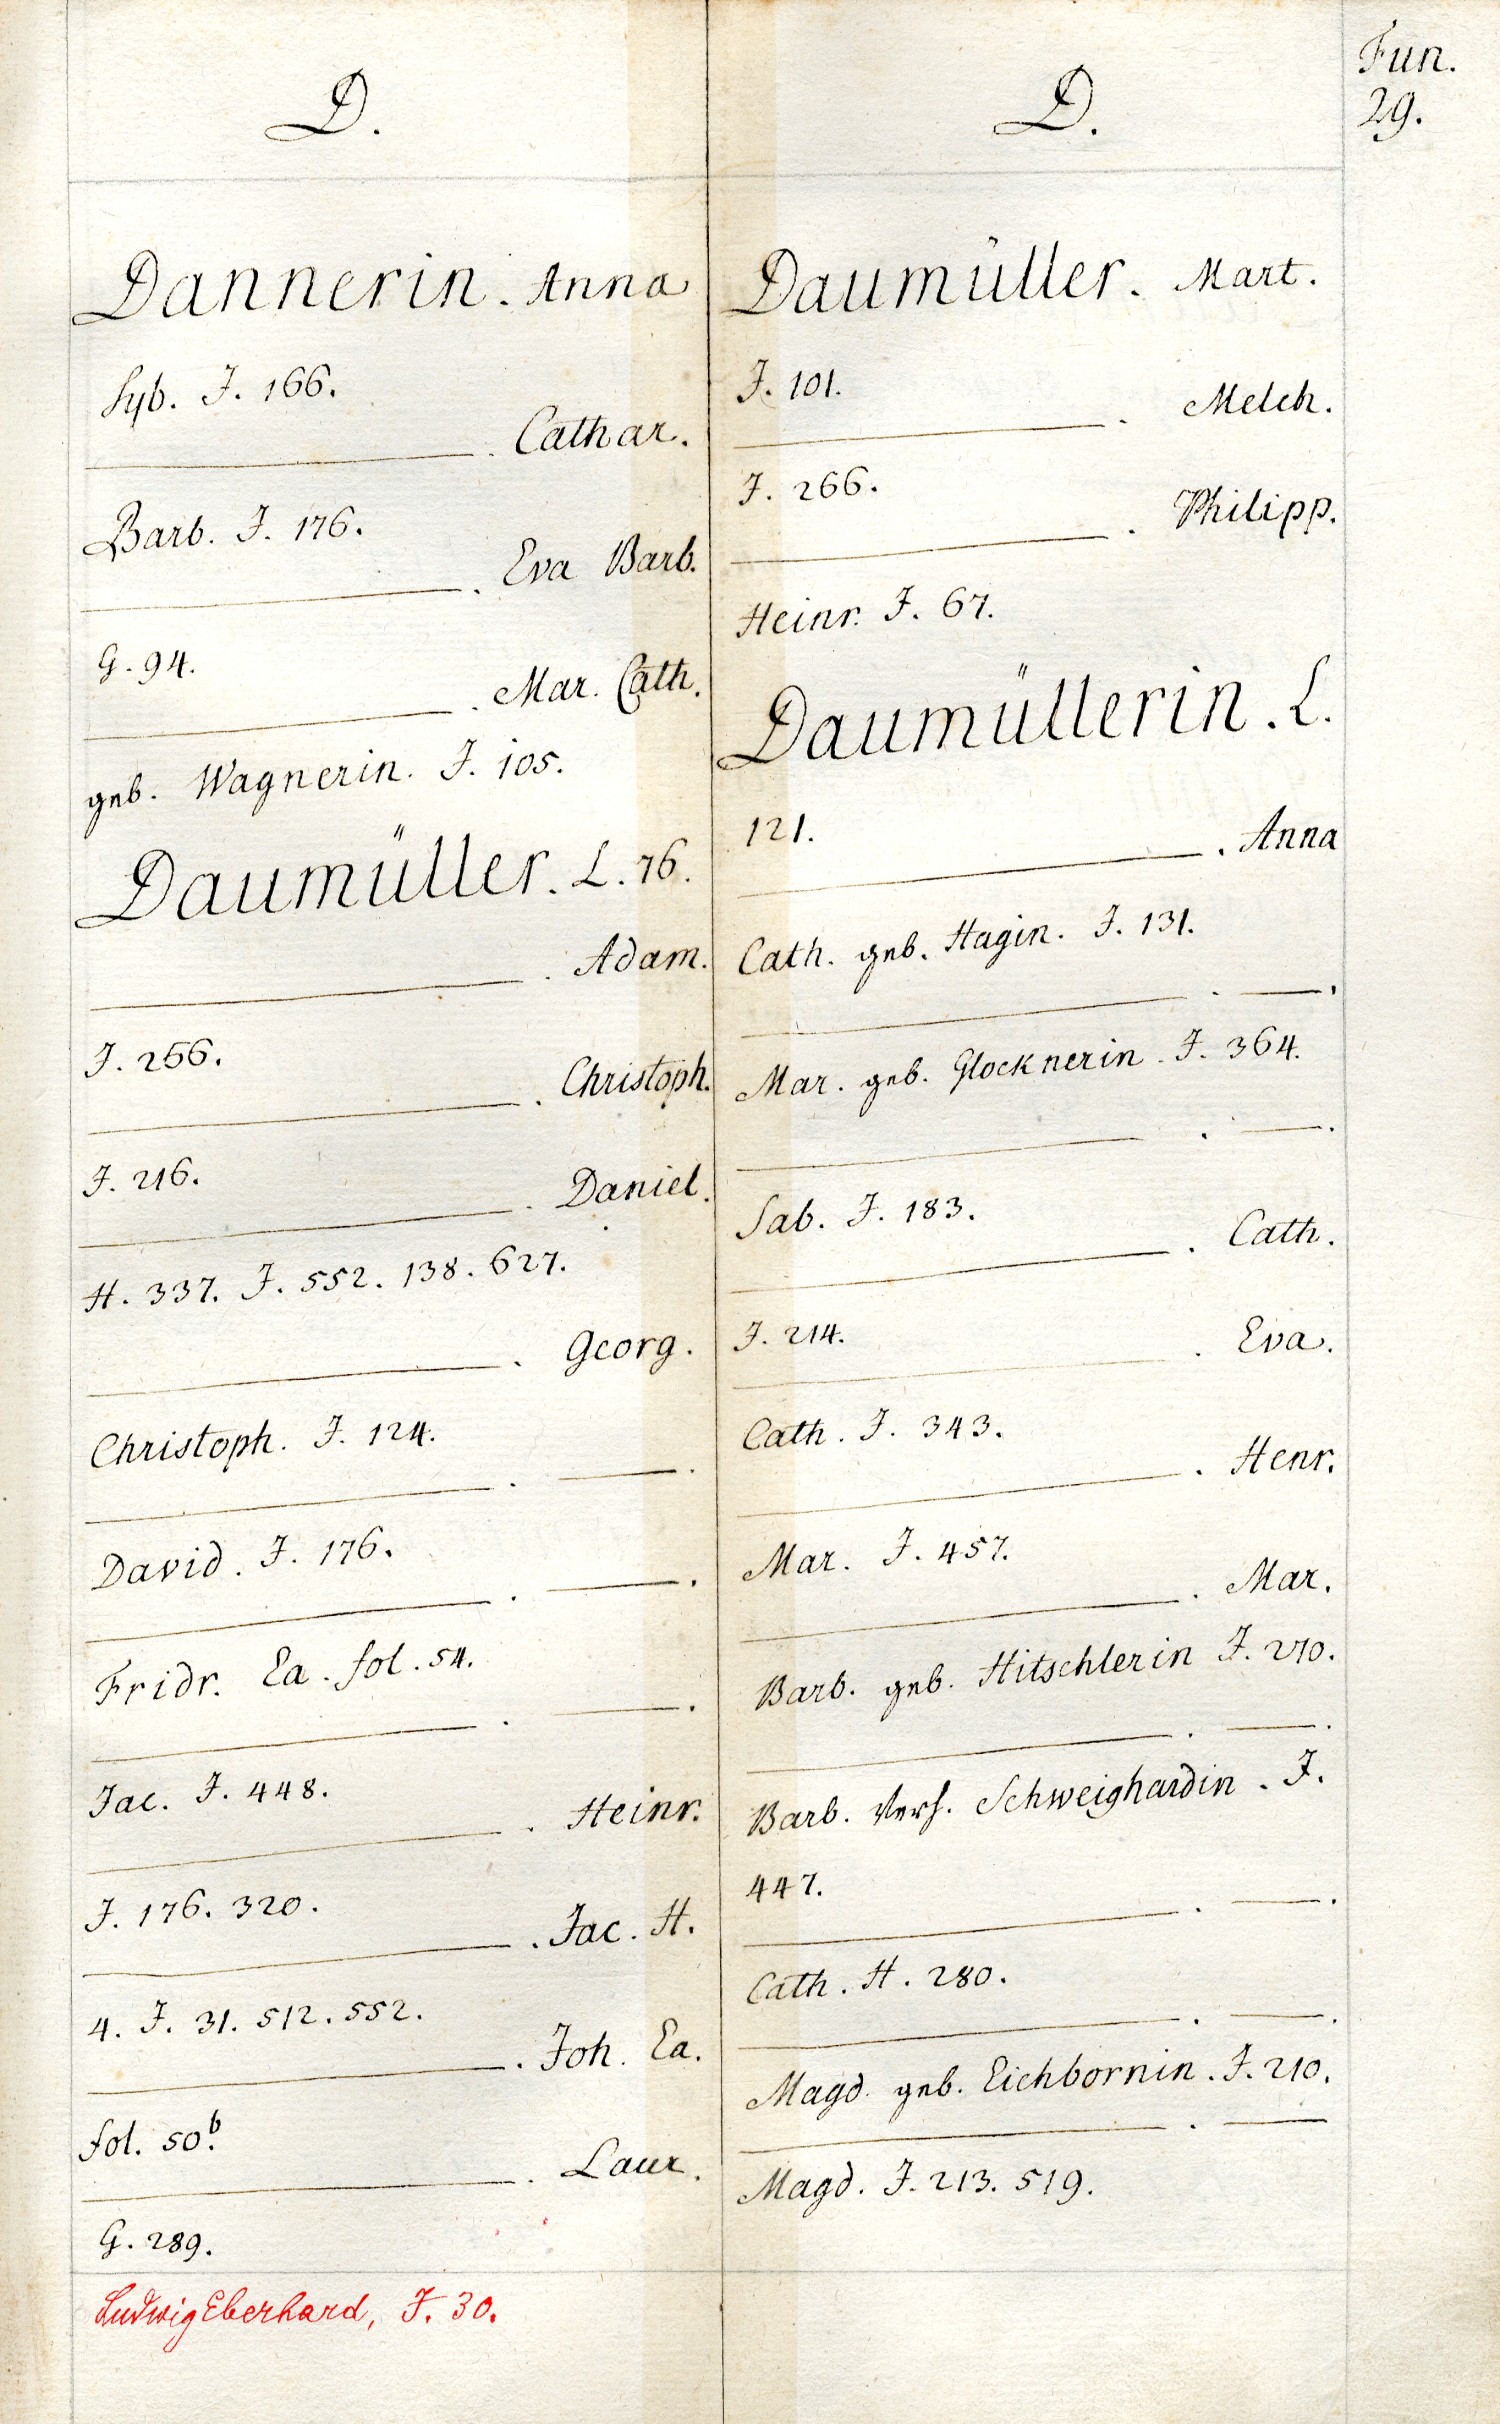 Fun.
29.
D.
Dannerin. Anna
Syb. J. 166.
. Cathar.
Barb. J. 176.
. Eva Barb.
G. 94.
. Mar. Cath.
geb. Wagnerin. J. 105.
Daumüller. L. 76.
. Adam.
J. 256.
. Christoph.
J. 216.
. Daniel.
H. 337. J. 552. 138. 627.
. Georg.
Christoph. J. 124.
. —.
David. J. 176.
. —.
Fridr. Ea. fol. 54.
. —.
Jac. J. 448.
. Heinr.
J. 176. 320.
. Jac. H.
4. J. 31. 512. 552.
. Joh. Ea.
fol. 50b.
. Laur.
G. 289.
Ludwig Eberhard, J. 30.
D.
Daumüller. Mart.
J. 101.
. Melch.
J. 266.
. Philipp.
Heinr. J. 67.
Daumüllerin. L.
121.
. Anna
Cath. geb. Hagin. J. 131.
. —.
Mar. geb. Glocknerin. J. 364.
. —.
Sab. J. 183.
. Cath.
J. 214.
. Eva.
Cath. J. 343.
. Henr.
Mar. J. 457.
. Mar.
Barb. geb. Hitschlerin J. 270.
. —.
Barb. Verh. Schweighardin. J.
447.
. —.
Cath. H. 280.
. —.
Magd. geb. Eichbornin. J. 210.
. —
Magd. J. 213. 519.